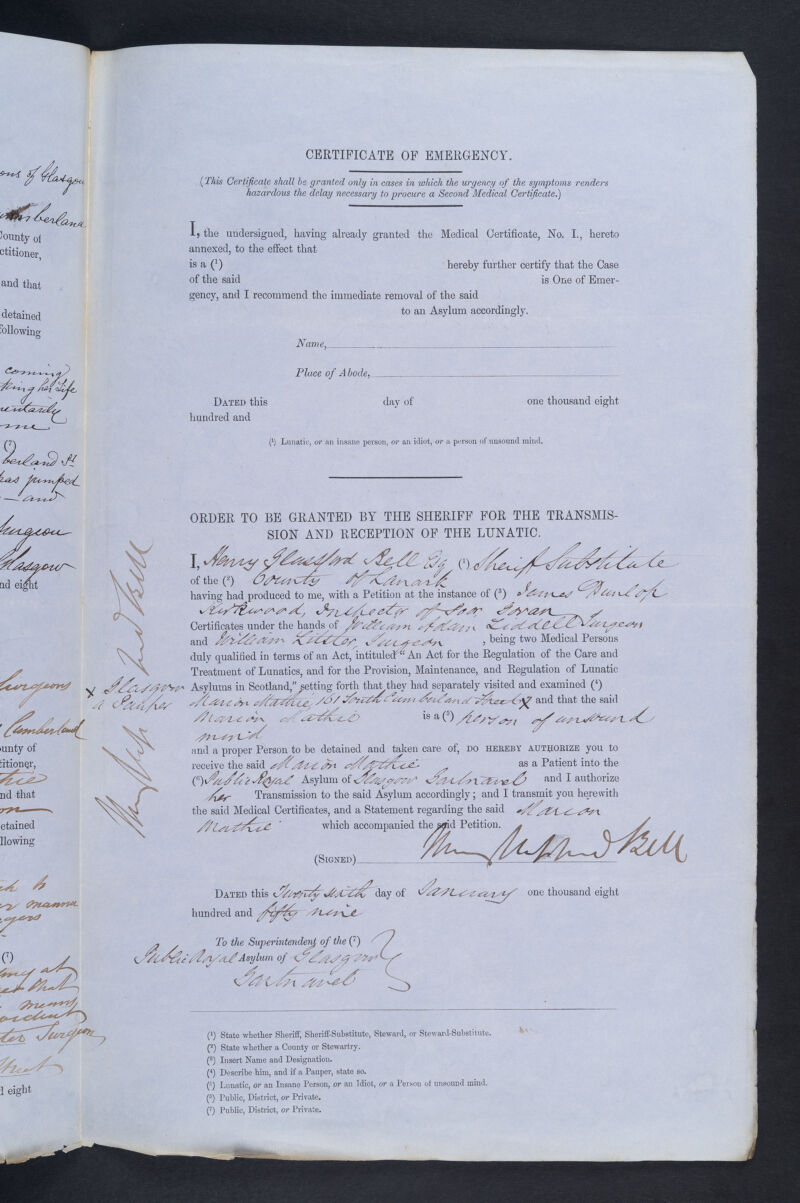 ons of Glasgow
umberland
County of
ctitioner,
and that
detained
following
coming
king her life
me
(7)
berland St
has jumped
and
Surgeon
Glasgow
nd eight
Surgeons
Cumberland
ounty of
titioner,
thie
nd that
on
etained
llowing
manner
(7)
ing at
that
means
ter Surgeon
Street
d eight
CERTIFICATE OF EMERGENCY.
(This Certificate shall be granted only in cases in which the urgency of the symptoms renders
hazardous the delay necessary to procure a Second Medical Certificate.)
I, the undersigned, having already granted the Medical Certificate, No. I., hereto
annexed, to the effect that
is a (1) hereby further certify that the Case
of the said is One of Emer-
gency, and I recommend the immediate removal of the said
to an Asylum accordingly.
Name,
Place of Abode,
DATED this day of one thousand eight
hundred and
(1) Lunatic, or an insane person, or an idiot, or a person of unsound mind.
ORDER TO BE GRANTED BY THE SHERIFF FOR THE TRANSMIS-
SION AND RECEPTION OF THE LUNATIC.
I, Henry Glassford Bell Esq (1) Sheriff Substitute
of the (2) County of Lanark
having had produced to me, with a Petition at the instance of (3) James Dunlop
Kirkwood, Inspector of Poor Govan
Certificates under the hands of William Adam Liddell Surgeon
and William Litster Surgeon, being two Medical Persons
duly qualified in terms of an Act, intituled "An Act for the Regulation of the Care and
Treatment of Lunatics, and for the Provision, Maintenance, and Regulation of Lunatic
Asylums in Scotland," setting forth that they had separately visited and examined (4)
x Glasgow
a Pauper
Marion Mathie, 161 South Cumberland Street x and that the said
Marion Mathie is a (5) person of unsound
mind
and a proper Person to be detained and taken care of, DO HEREBY AUTHORIZE you to
receive the said Marion Mathie as a Patient into the
(6) Public Royal Asylum of Glasgow Gartnavel and I authorize
her Transmission to the said Asylum accordingly; and I transmit you herewith
the said Medical Certificates, and a Statement regarding the said Marion
Mathie which accompanied the said Petition.
(SIGNED) Henry Glassford Bell
Henry Glassford Bell
DATED this Twenty sixth day of January one thousand eight
hundred and fifty nine
To the Superintendent of the (7)
Public Royal Asylum of Glasgow
Gartnavel
(1) State whether Sheriff, Sheriff-Substitute, Steward, or Steward-Substitute.
(2) State whether a County or Stewartry.
(3) Insert Name and Designation.
(4) Describe him, and if a Pauper, state so.
(5) Lunatic, or an Insane Person, or an Idiot, or a Person of unsound mind.
(6) Public, District, or Private.
(7) Public, District, or Private.